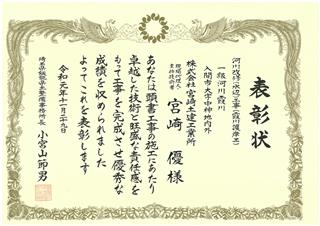 表彰状
河川改修(水辺)工事(霞川護岸工)
一級河川霞川
入間市大字中神地内外
株式会社宮崎土建工業所
現場代理人
主任技術者
宮崎 優 様
あなたは頭書工事の施工にあたり
卓越した技術と旺盛な責任感を
もって工事を完成させ優秀な
成績を収められました
よってこれを表彰します
令和元年十一月二十九日
埼玉県飯能県土整備事務所長
小宮山 節男